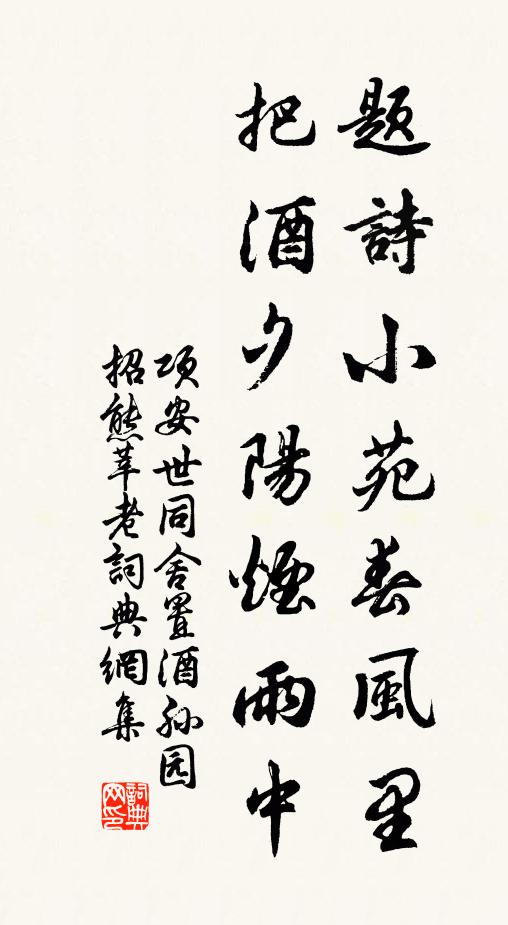 題詩小苑春風里
把酒夕陽煙雨中
项安世同舍置酒孙园
招熊莘老詞典網集
詞典
网印